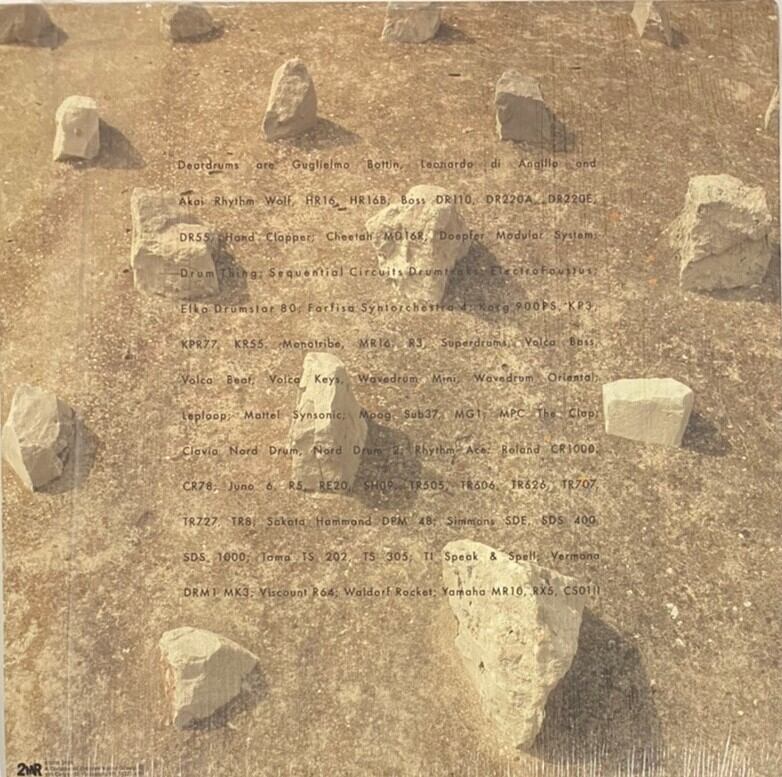 Deardrums are Guglielmo Bottin, Leonardo di Angilla and
Akai Rhythm Wolf, HR16, HR16B; Boss DR110, DR220A, DR220E,
DR55, Hand Clapper; Cheetah MD16R, Doepfer Modular System;
Drum Thing; Sequential Circuits Drumtraks; ElectroFaustus;
Elka Drumstar 80; Farfisa Syntorchestra 4; Korg 900PS, KP3,
KPR77, KR55, Monotribe, MR16, R3, Superdrums, Volca Bass,
Volca Beat, Volca Keys, Wavedrum Mini, Wavedrum Oriental;
Leploop; Mattel Synsonic; Moog Sub37, MG1; MPC The Clap;
Clavia Nord Drum, Nord Drum 2; Rhythm Ace; Roland CR1000,
CR78, Juno 6, R5, RE20, SH09, TR505, TR606, TR626, TR707,
TR727, TR8; Sakata Hammond DPM 48; Simmons SDE, SDS 400,
SDS 1000; Tama TS 202, TS 305; TI Speak & Spell; Vermona
DRM1 MK3; Viscount R64; Waldorf Rocket; Yamaha MR10, RX5, CS01II
2MR